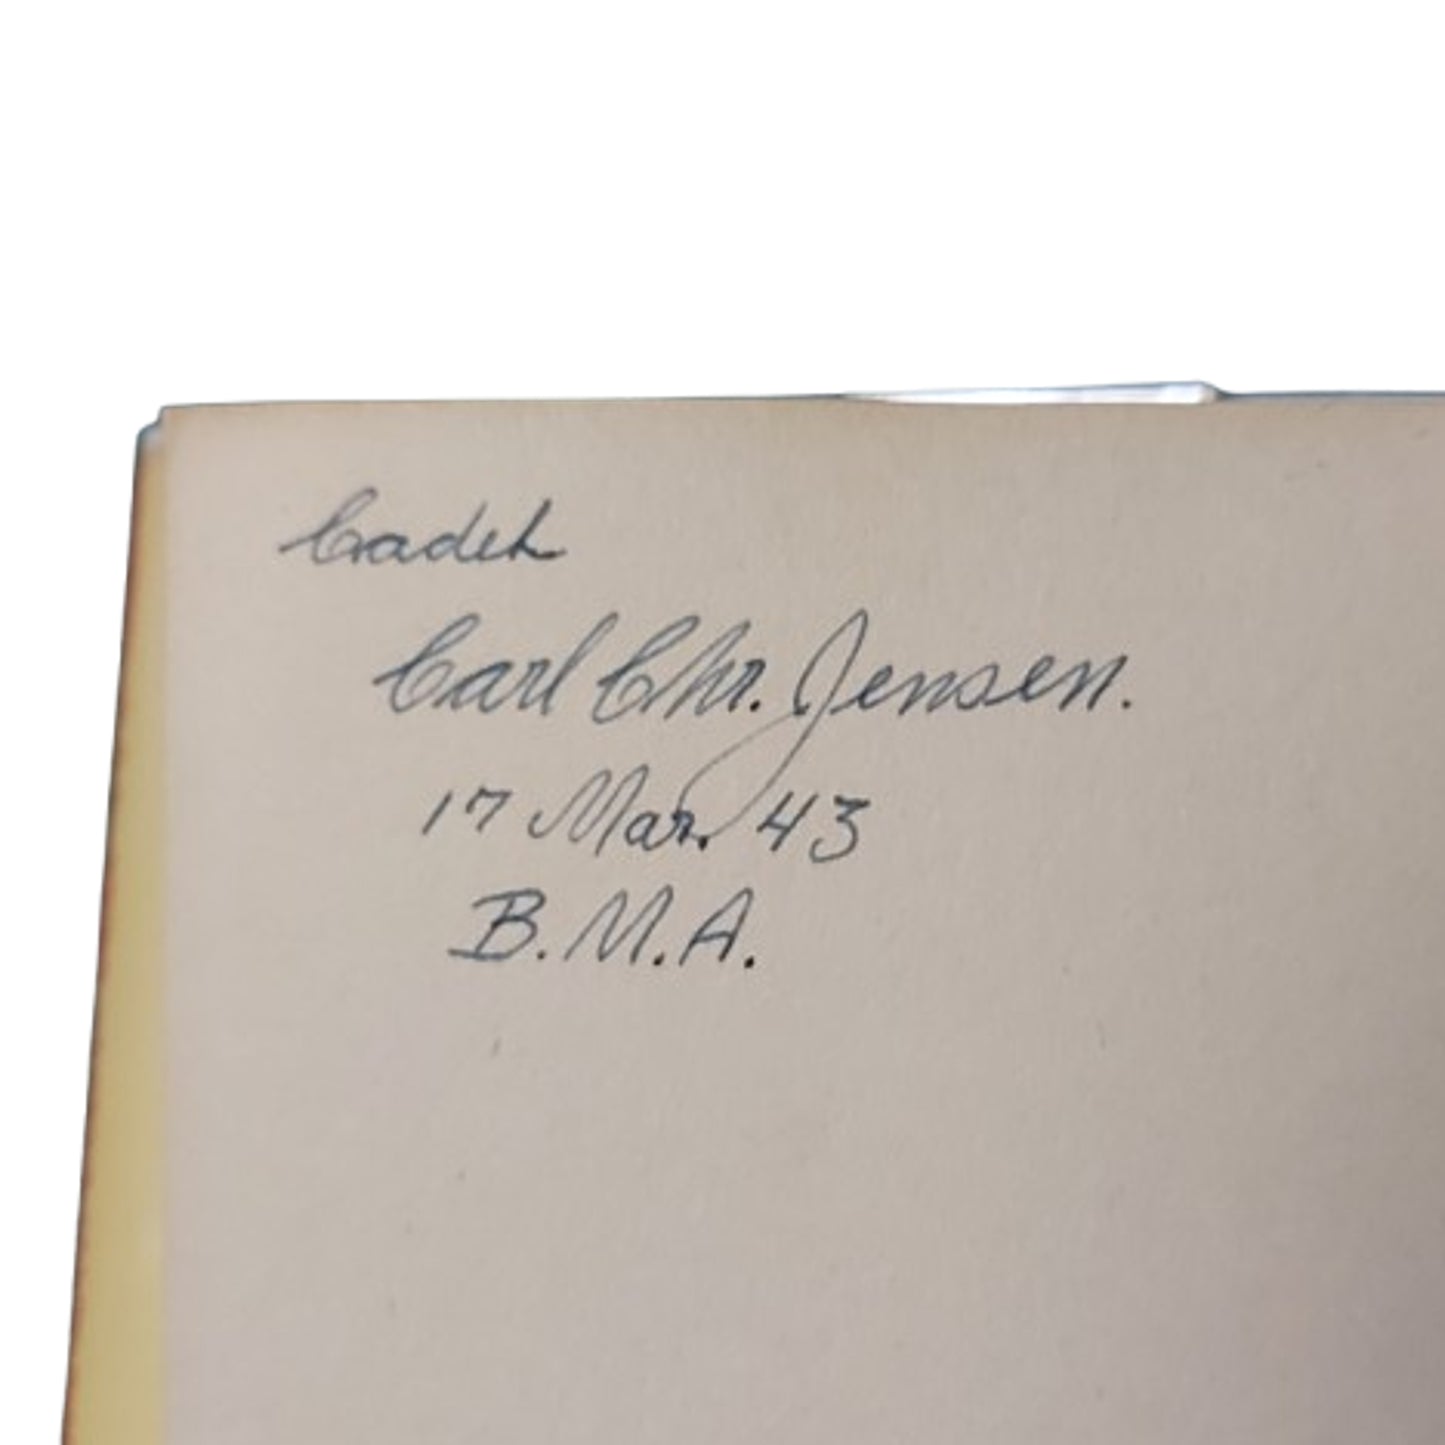 Cadet
Carl Chr. Jensen.
17 Mar. 43
B.M.A.